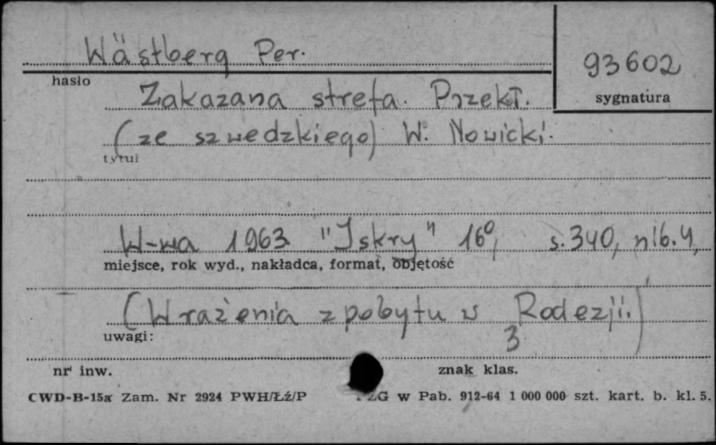 Wästberg Per.
93602
hasło
sygnatura
Zakazana strefa. Przekł.
(ze szwedzkiego) W. Nowicki.
tytuł
W-wa 1963 "Iskry" 16°, s. 340, nlb. 4,
miejsce, rok wyd., nakładca, format, objętość
(Wrażenia z pobytu w Rodezji.)
uwagi:
3
nr inw.
znak klas.
CWD-B-15a Zam. Nr 2924 PWH/Łź/P
w Pab. 912-64 1 000 000 szt. kart. b. kl. 5.